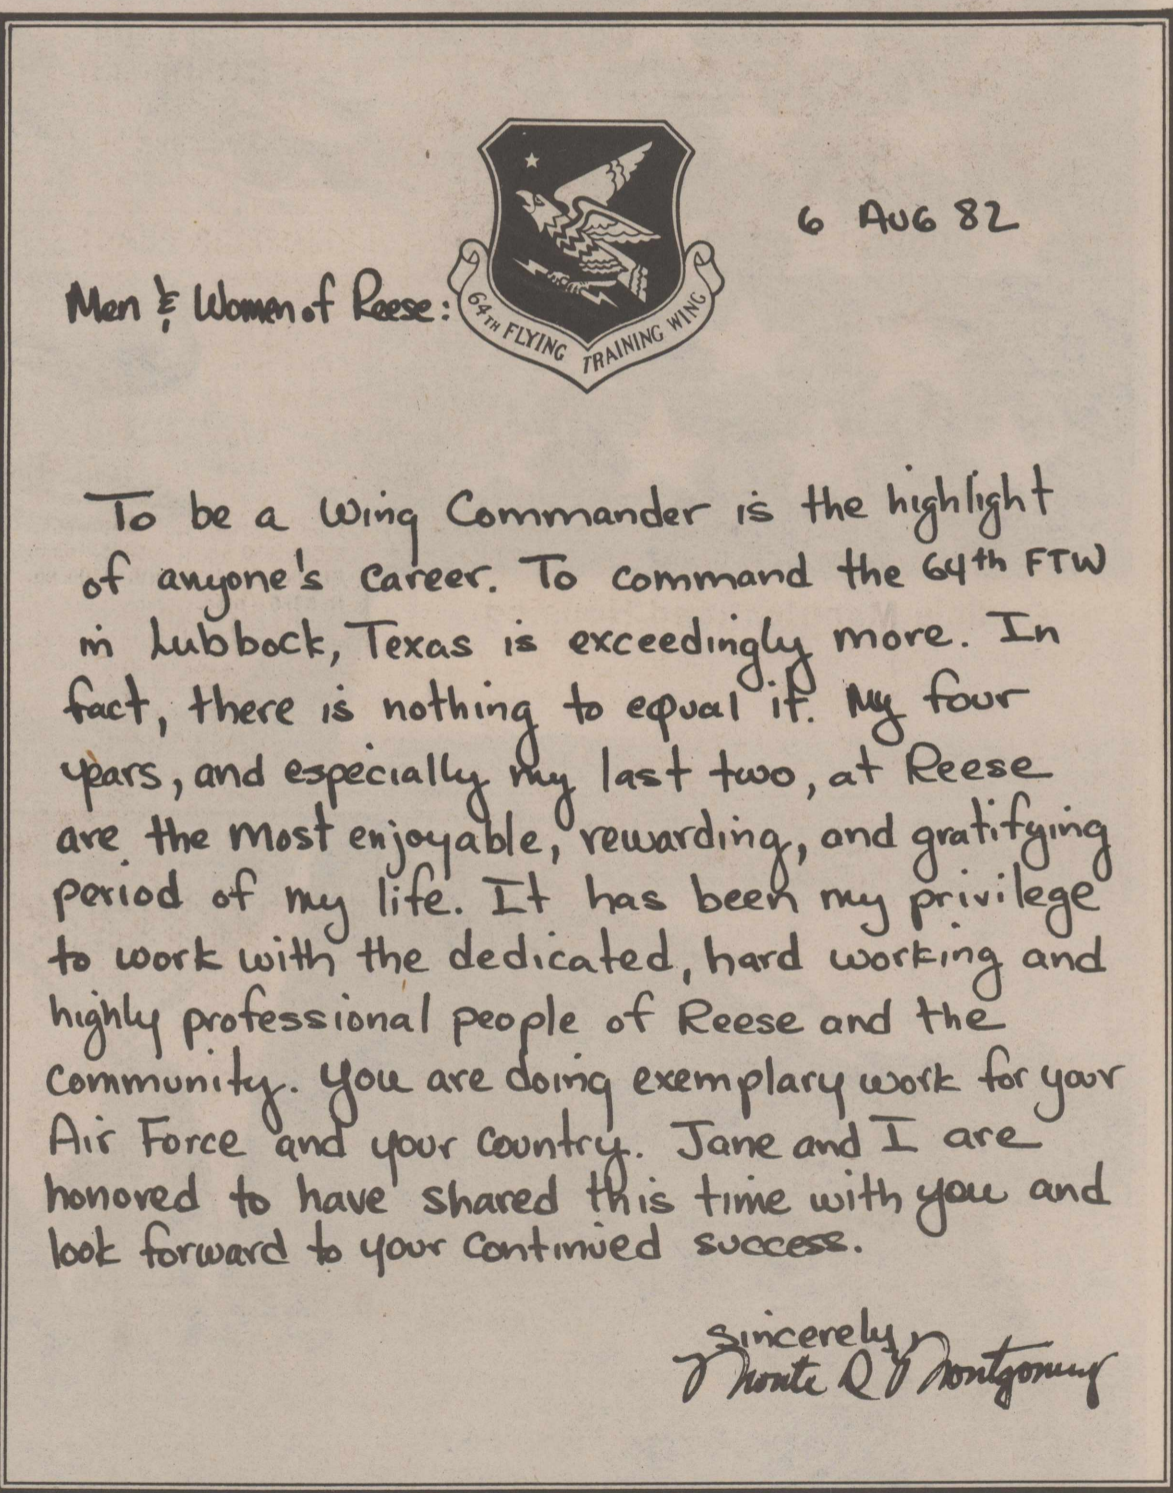 6 AUG 82
Men & Women of Reese:
64TH FLYING TRAINING WING
To be a Wing Commander is the highlight
of anyone's career. To command the 64th FTW
in Lubbock, Texas is exceedingly more. In
fact, there is nothing to equal it. My four
years, and especially my last two, at Reese
are the most enjoyable, rewarding, and gratifying
period of my life. It has been my privilege
to work with the dedicated, hard working and
highly professional people of Reese and the
Community. You are doing exemplary work for your
Air Force and your Country. Jane and I are
honored to have shared this time with you and
look forward to your continued success.
Sincerely,
Monte D Montgomery